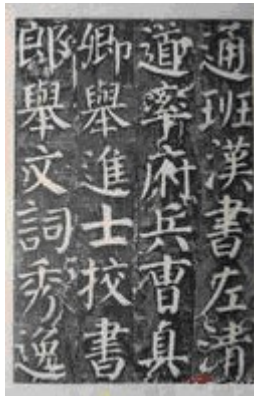 通班漢書左清
道率府兵曹真
卿舉進士挍書
郎舉文詞秀逸